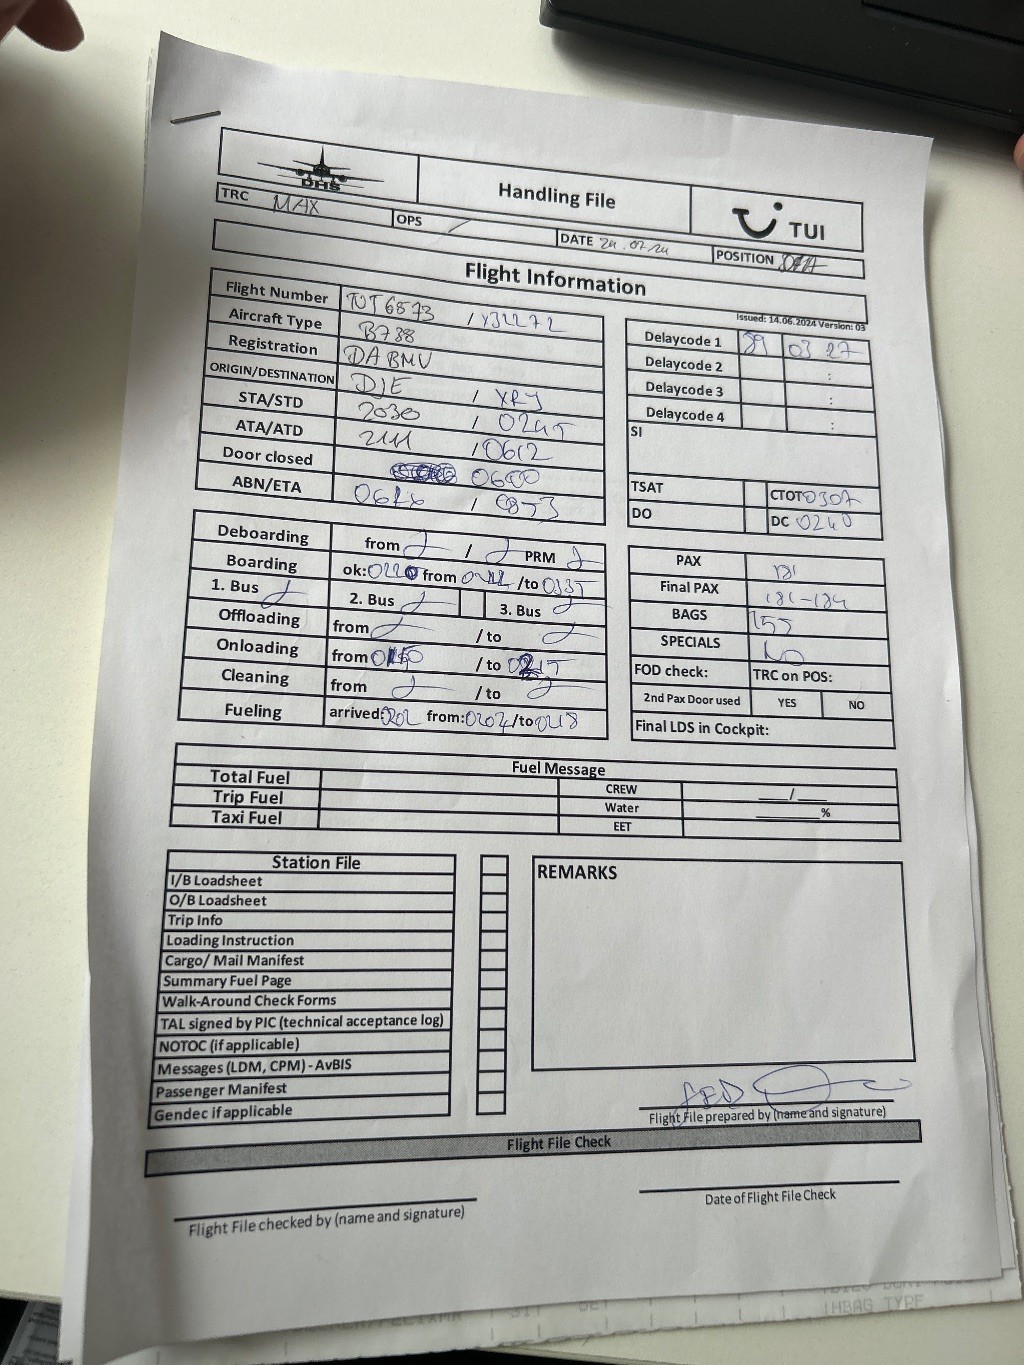 DHS
Handling File
TUI
TRC MAX
OPS /
DATE 24.07.24
POSITION
Flight Information
Issued: 14.06.2024 Version: 03
Flight Number TOT6573 / X32272
Aircraft Type B738
Registration DABMV
ORIGIN/DESTINATION DJE / XRY
STA/STD 2030 / 0245
ATA/ATD 2111 / 0612
Door closed 0600
ABN/ETA / 0853
Delaycode 1 89 03 27
Delaycode 2 :
Delaycode 3 :
Delaycode 4 :
SI
TSAT CTOT 0307
DO DC 0240
Deboarding from / PRM
Boarding ok: 0120 from /to 0135
1. Bus 2. Bus 3. Bus
Offloading from / to
Onloading from / to 0215
Cleaning from / to
Fueling arrived: 0202 from: 0207 /to 0218
PAX 181
Final PAX 181-184
BAGS 155
SPECIALS NO
FOD check: TRC on POS:
2nd Pax Door used YES NO
Final LDS in Cockpit:
Fuel Message
Total Fuel CREW ___/___
Trip Fuel Water ______%
Taxi Fuel EET
Station File
I/B Loadsheet
O/B Loadsheet
Trip Info
Loading Instruction
Cargo/ Mail Manifest
Summary Fuel Page
Walk-Around Check Forms
TAL signed by PIC (technical acceptance log)
NOTOC (if applicable)
Messages (LDM, CPM) - AvBIS
Passenger Manifest
Gendec if applicable
REMARKS
Flight File prepared by (name and signature)
Flight File Check
Flight File checked by (name and signature)
Date of Flight File Check
HBAG TYPE